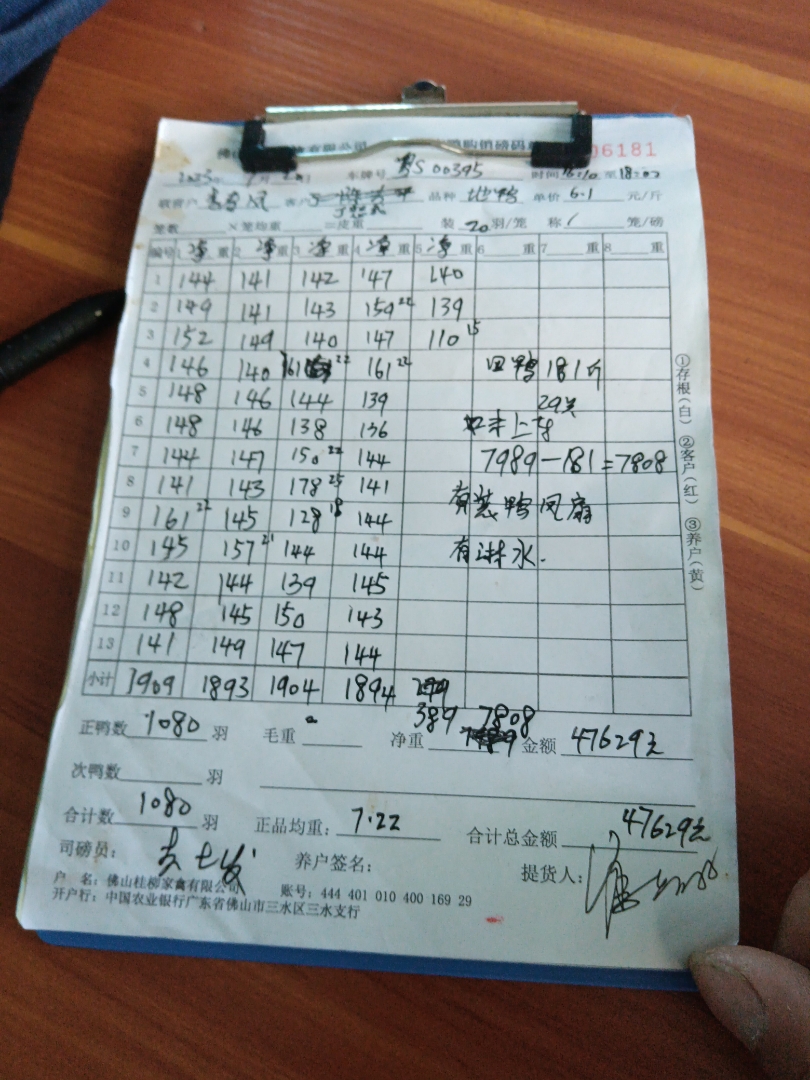 佛山 有限公司 购销磅码单 06181
2023年 7月 车牌号 粤S 00395 时间16:10至18:02
联营户 客户 品种 地鸭 单价 6.1 元/斤
笼数 ×笼均重 =皮重 装 20 羽/笼 称 / 笼/磅
编号 1 净重 2 净重 3 净重 4 净重 5 净重 6 重 7 重 8 重
1 144 141 142 147 140
2 149 141 143 159 22 139
3 152 149 140 147 110 15
4 146 140 161 22 161 22 回鸭 181斤
5 148 146 144 139 29只
6 148 146 138 136 上
7 144 147 150 22 144 7989-181=7808
8 141 143 178 25 141
9 161 22 145 128 18 144 有装鸭风扇
10 145 157 21 144 144 有淋水.
11 142 144 139 145
12 148 145 150 143
13 141 149 147 144
小计 1909 1893 1904 1894
389 7808
正鸭数 1080 羽 毛重 净重 金额 47629元
次鸭数 羽
合计数 1080 羽 正品均重: 7.22 合计总金额 47629元
司磅员: 养户签名: 提货人:
户 名: 佛山桂柳家禽有限公司 账号: 444 401 010 400 169 29
开户行: 中国农业银行广东省佛山市三水区三水支行
①存根(白) ②客户(红) ③养户(黄)